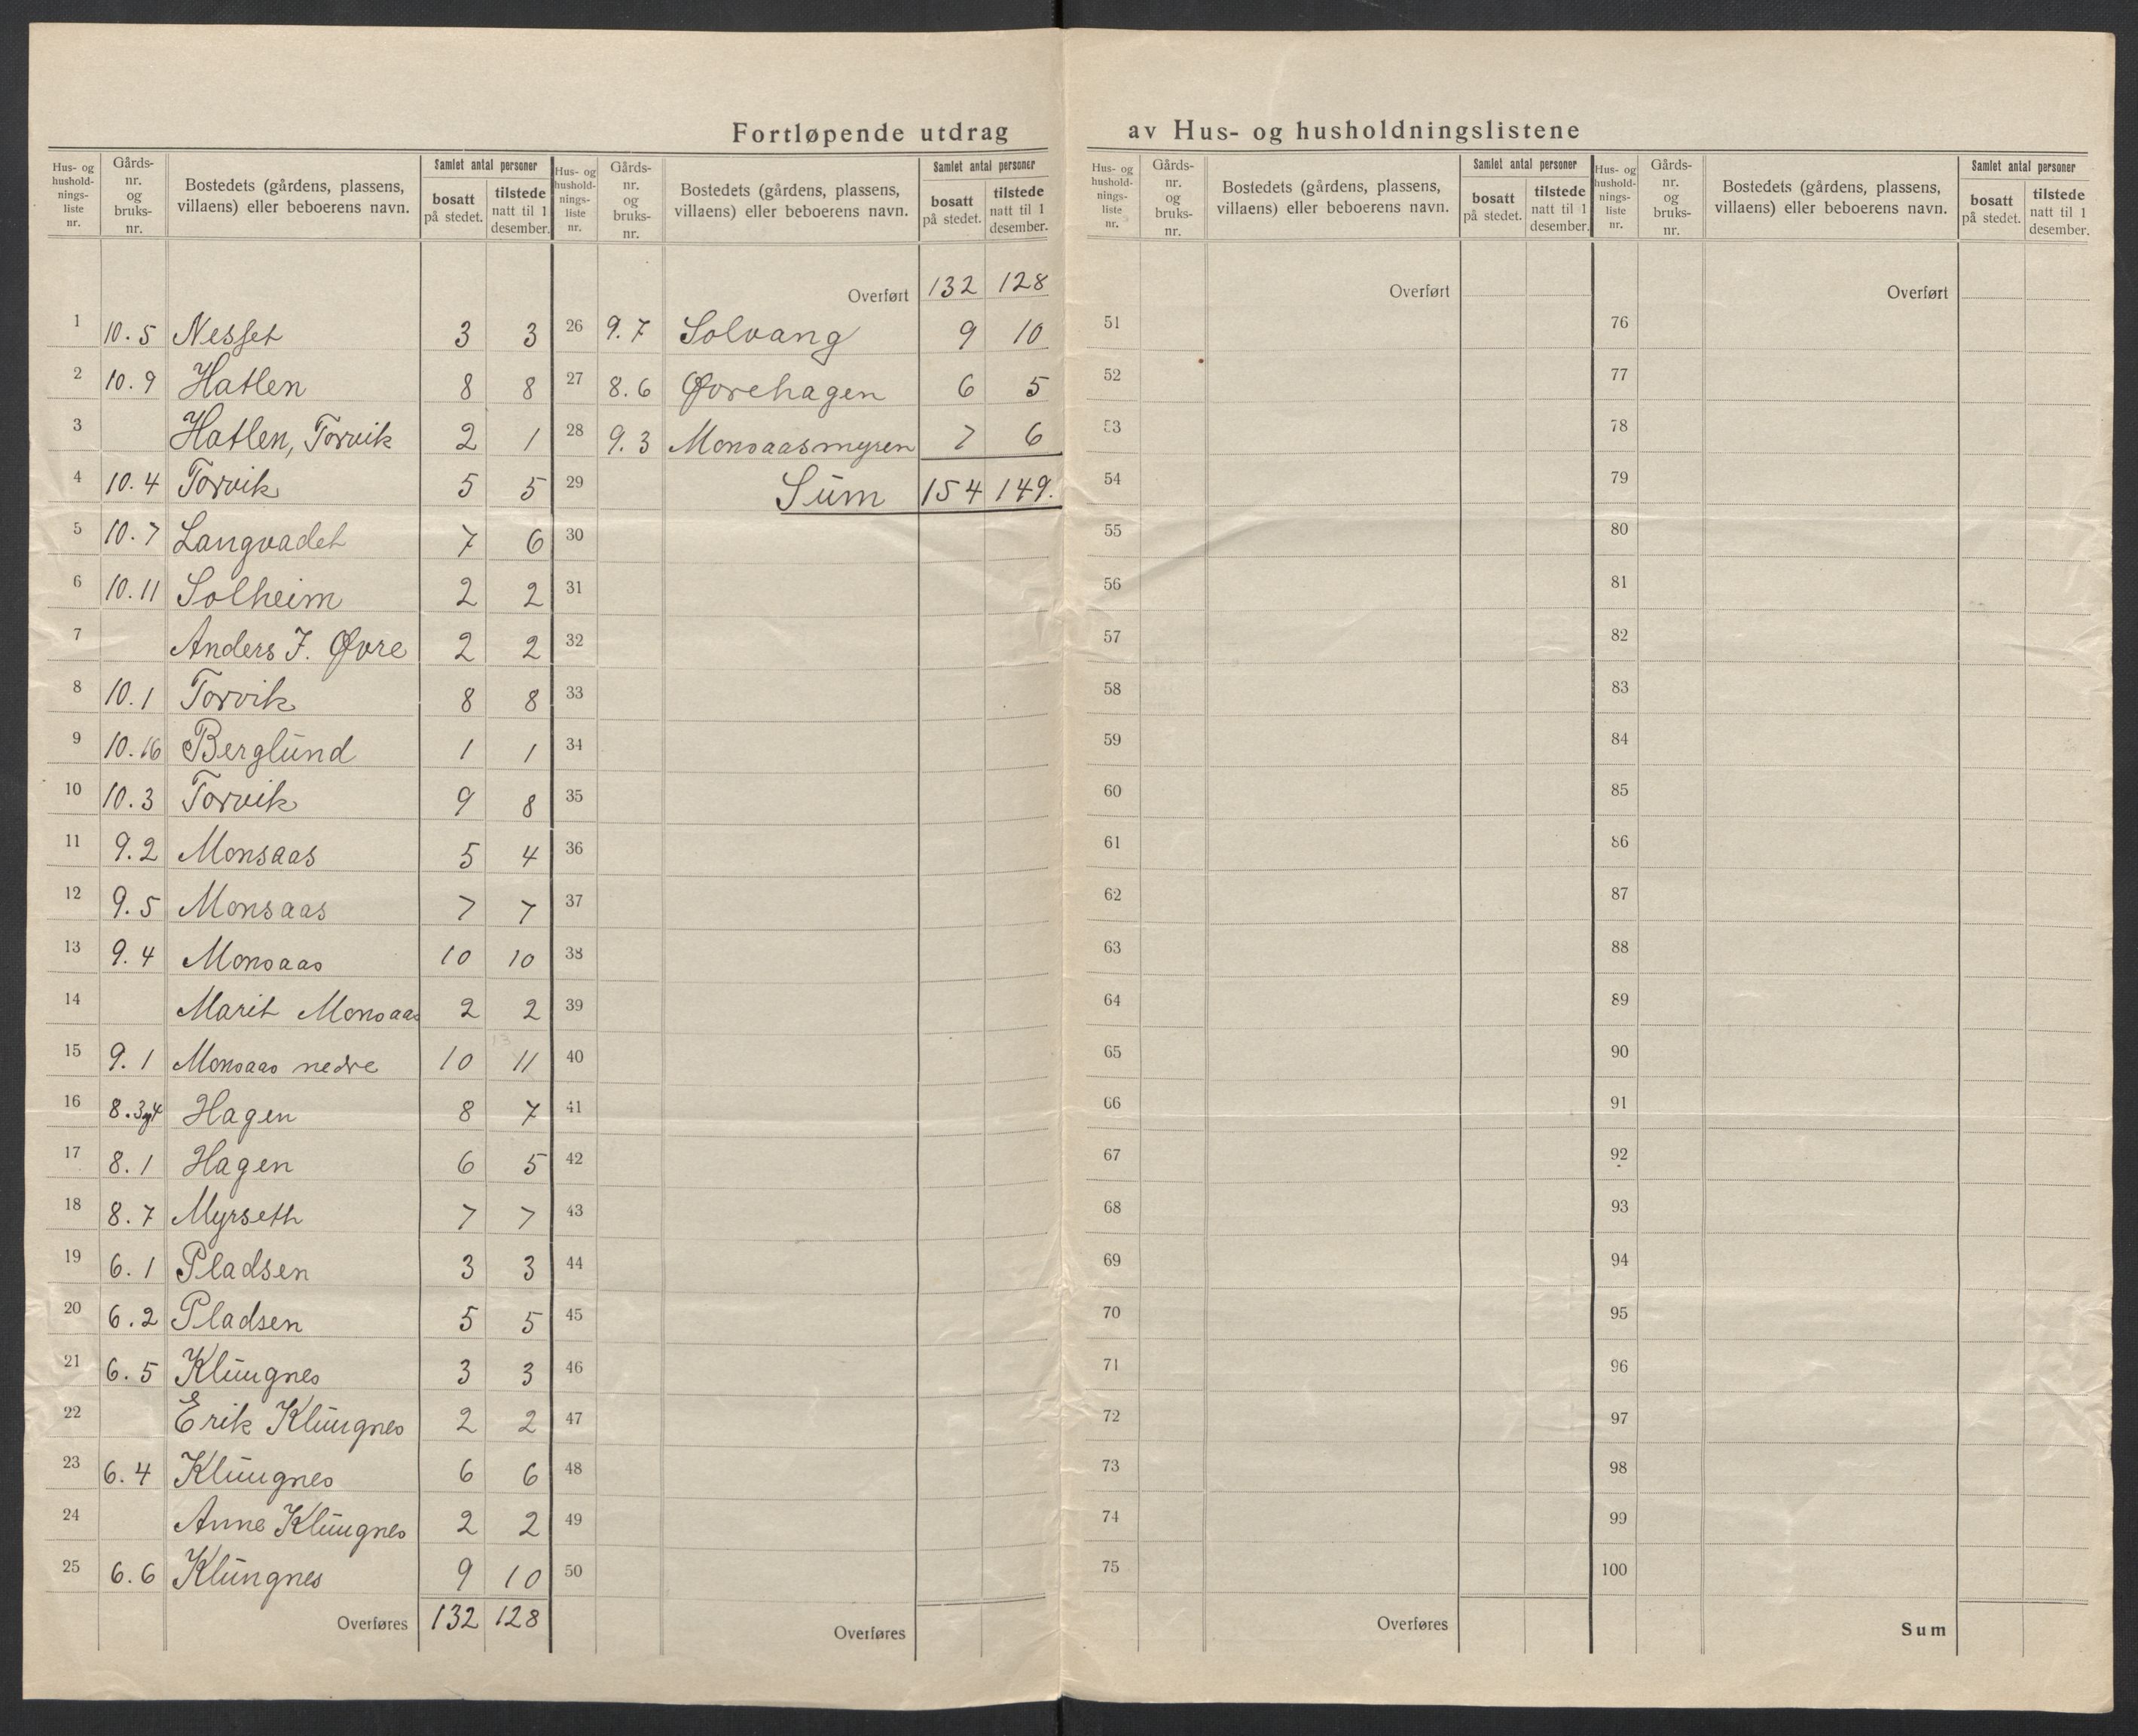 Fortløpende utdrag av Hus- og husholdningslistene
Hus- og hushold-nings-liste nr. | Gårds-nr. og bruks-nr. | Bostedets (gårdens, plassens, villaens) eller beboerens navn. | Samlet antal personer | bosatt på stedet. | tilstede natt til 1 desember.
1 10.5 Nesset 3 3
2 10.9 Hatlen 8 8
3 Hatlen, Torvik 2 1
4 10.4 Torvik 5 5
5 10.7 Langvadet 7 6
6 10.11 Solheim 2 2
7 Anders J. Øvre 2 2
8 10.1 Torvik 8 8
9 10.16 Berglund 1 1
10 10.3 Torvik 9 8
11 9.2 Monsaas 5 4
12 9.5 Monsaas 7 7
13 9.4 Monsaas 10 10
14 Marit Monsaas 2 2
15 9.1 Monsaas nedre 10 11
16 8.3og4 Hagen 8 7
17 8.1 Hagen 6 5
18 8.7 Myrseth 7 7
19 6.1 Pladsen 3 3
20 6.2 Pladsen 5 5
21 6.5 Klungnes 3 3
22 Erik Klungnes 2 2
23 6.4 Klungnes 6 6
24 Anne Klungnes 2 2
25 6.6 Klungnes 9 10
Overføres 132 128
Hus- og hushold-nings-liste nr. | Gårds-nr. og bruks-nr. | Bostedets (gårdens, plassens, villaens) eller beboerens navn. | Samlet antal personer | bosatt på stedet. | tilstede natt til 1 desember.
Overført 132 128
26 9.7 Solvang 9 10
27 8.6 Øvrehagen 6 5
28 9.3 Monsaasmyren 7 6
29 Sum 154 149.
30
31
32
33
34
35
36
37
38
39
40
41
42
43
44
45
46
47
48
49
50
Overføres
Hus- og hushold-nings-liste nr. | Gårds-nr. og bruks-nr. | Bostedets (gårdens, plassens, villaens) eller beboerens navn. | Samlet antal personer | bosatt på stedet. | tilstede natt til 1 desember.
Overført
51
52
53
54
55
56
57
58
59
60
61
62
63
64
65
66
67
68
69
70
71
72
73
74
75
Overføres
Hus- og hushold-nings-liste nr. | Gårds-nr. og bruks-nr. | Bostedets (gårdens, plassens, villaens) eller beboerens navn. | Samlet antal personer | bosatt på stedet. | tilstede natt til 1 desember.
Overført
76
77
78
79
80
81
82
83
84
85
86
87
88
89
90
91
92
93
94
95
96
97
98
99
100
Sum